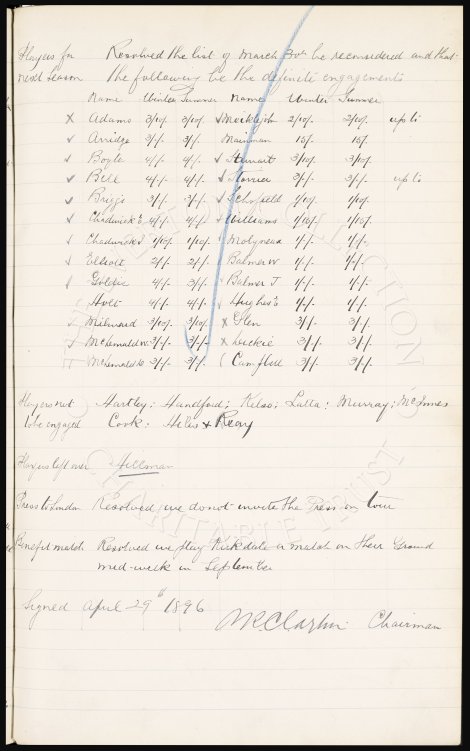 Players for Resolved the list of March 30th be reconsidered and that
next season the following be the definite engagements
Name Winter Summer Name Winter Summer
x Adams 3/10/- 3/10/- Meiklejohn 2/10/- 2/10/- up to
Arridge 3/-/- 3/-/- Mainman 15/- 15/-
Boyle 4/-/- 4/-/- Stewart 3/10/- 3/10/-
Bell 4/-/- 4/-/- Storrier 3/-/- 3/-/- up to
Briggs 3/-/- Schofield 1/10/- 1/10/-
Chadwick E 4/-/- 4/-/- Williams 1/15/- 1/15/-
Chadwick 1/10/- 1/10/- Molyneux 1/-/- 1/-/-
Elliott 2/-/- 2/-/- Balmer W 1/-/- 1/-/-
Goldie 4/-/- 3/-/- Balmer J 1/-/- 1/-/-
Holt 4/-/- 4/-/- Hughes E 1/-/- 1/-/-
Milward 3/10/- 3/10/- x Glen 3/-/- 3/-/-
McDonald 3/-/- 3/-/- x Dickie 3/-/- 3/-/-
McDonald 3/-/- 3/-/- Campbell 3/-/- 3/-/-
Players not Hartley: Handford: Kelso: Latta: Murray: McInnes
to be engaged Cook: Hiles & Reay
Players left over Hillman
Press to London Resolved we do not invite the Press on tour
Benefit match Resolved we play Kirkdale a match on their Ground
mid-week in September
Signed April 29th 1896
W.R. Clayton Chairman
COLLECTION
CHARITABLE TRUST